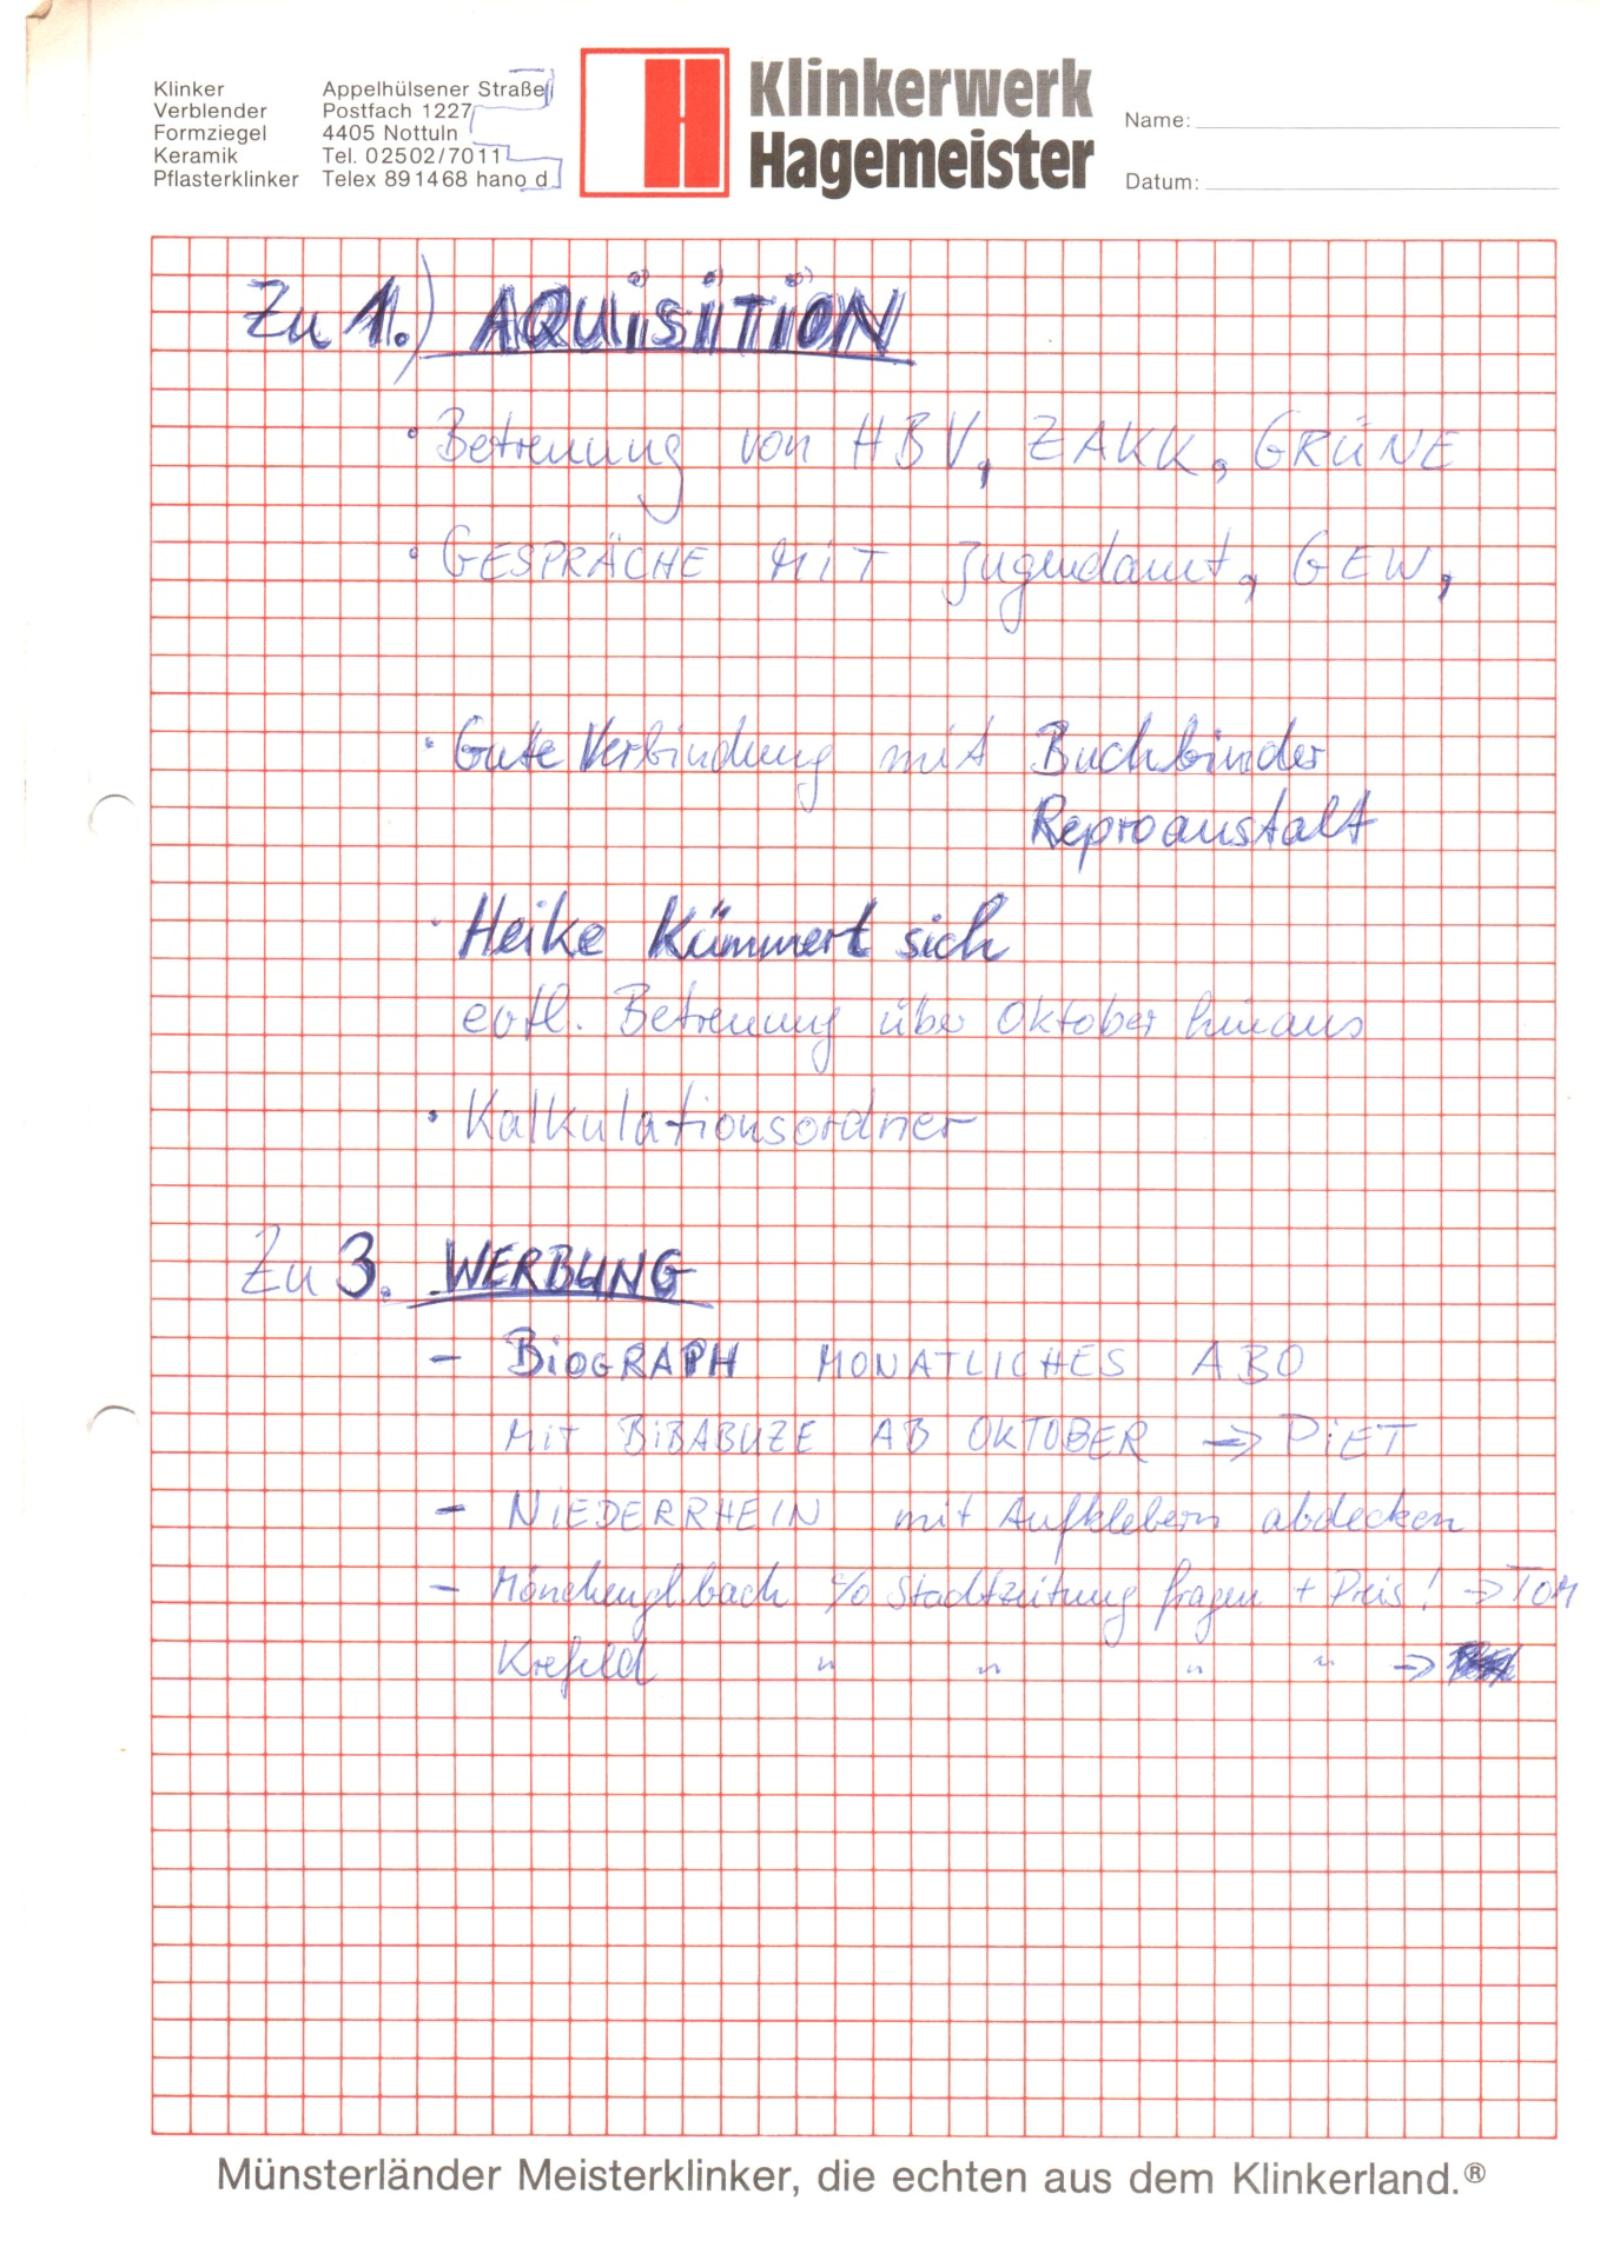 Klinker
Verblender
Formziegel
Keramik
Pflasterklinker
Appelhülsener Straße
Postfach 1227
4405 Nottuln
Tel. 02502/7011
Telex 891468 hano d
Klinkerwerk
Hagemeister
Name:
Datum:
Zu 1.) AQUiSiTiON
• Betreuung von HBV, ZAKK, GRÜNE
• GESPRÄCHE MiT Jugendamt, GEW,
• Gute Verbindung mit Buchbinder
Reproanstalt
• Heike Kümmert sich
evtl. Betreuung über Oktober hinaus
• Kalkulationsordner
Zu 3. WERBUNG
– BiOGRAPH MONATLICHES ABO
MiT BiBABUZE AB OKTOBER => PiET
– NiEDERRHEIN mit Aufklebern abdecken
– Mönchenglbach c/o Stadtzeitung fragen + Preis! => TOM
Krefeld " " " " =>
Münsterländer Meisterklinker, die echten aus dem Klinkerland.®